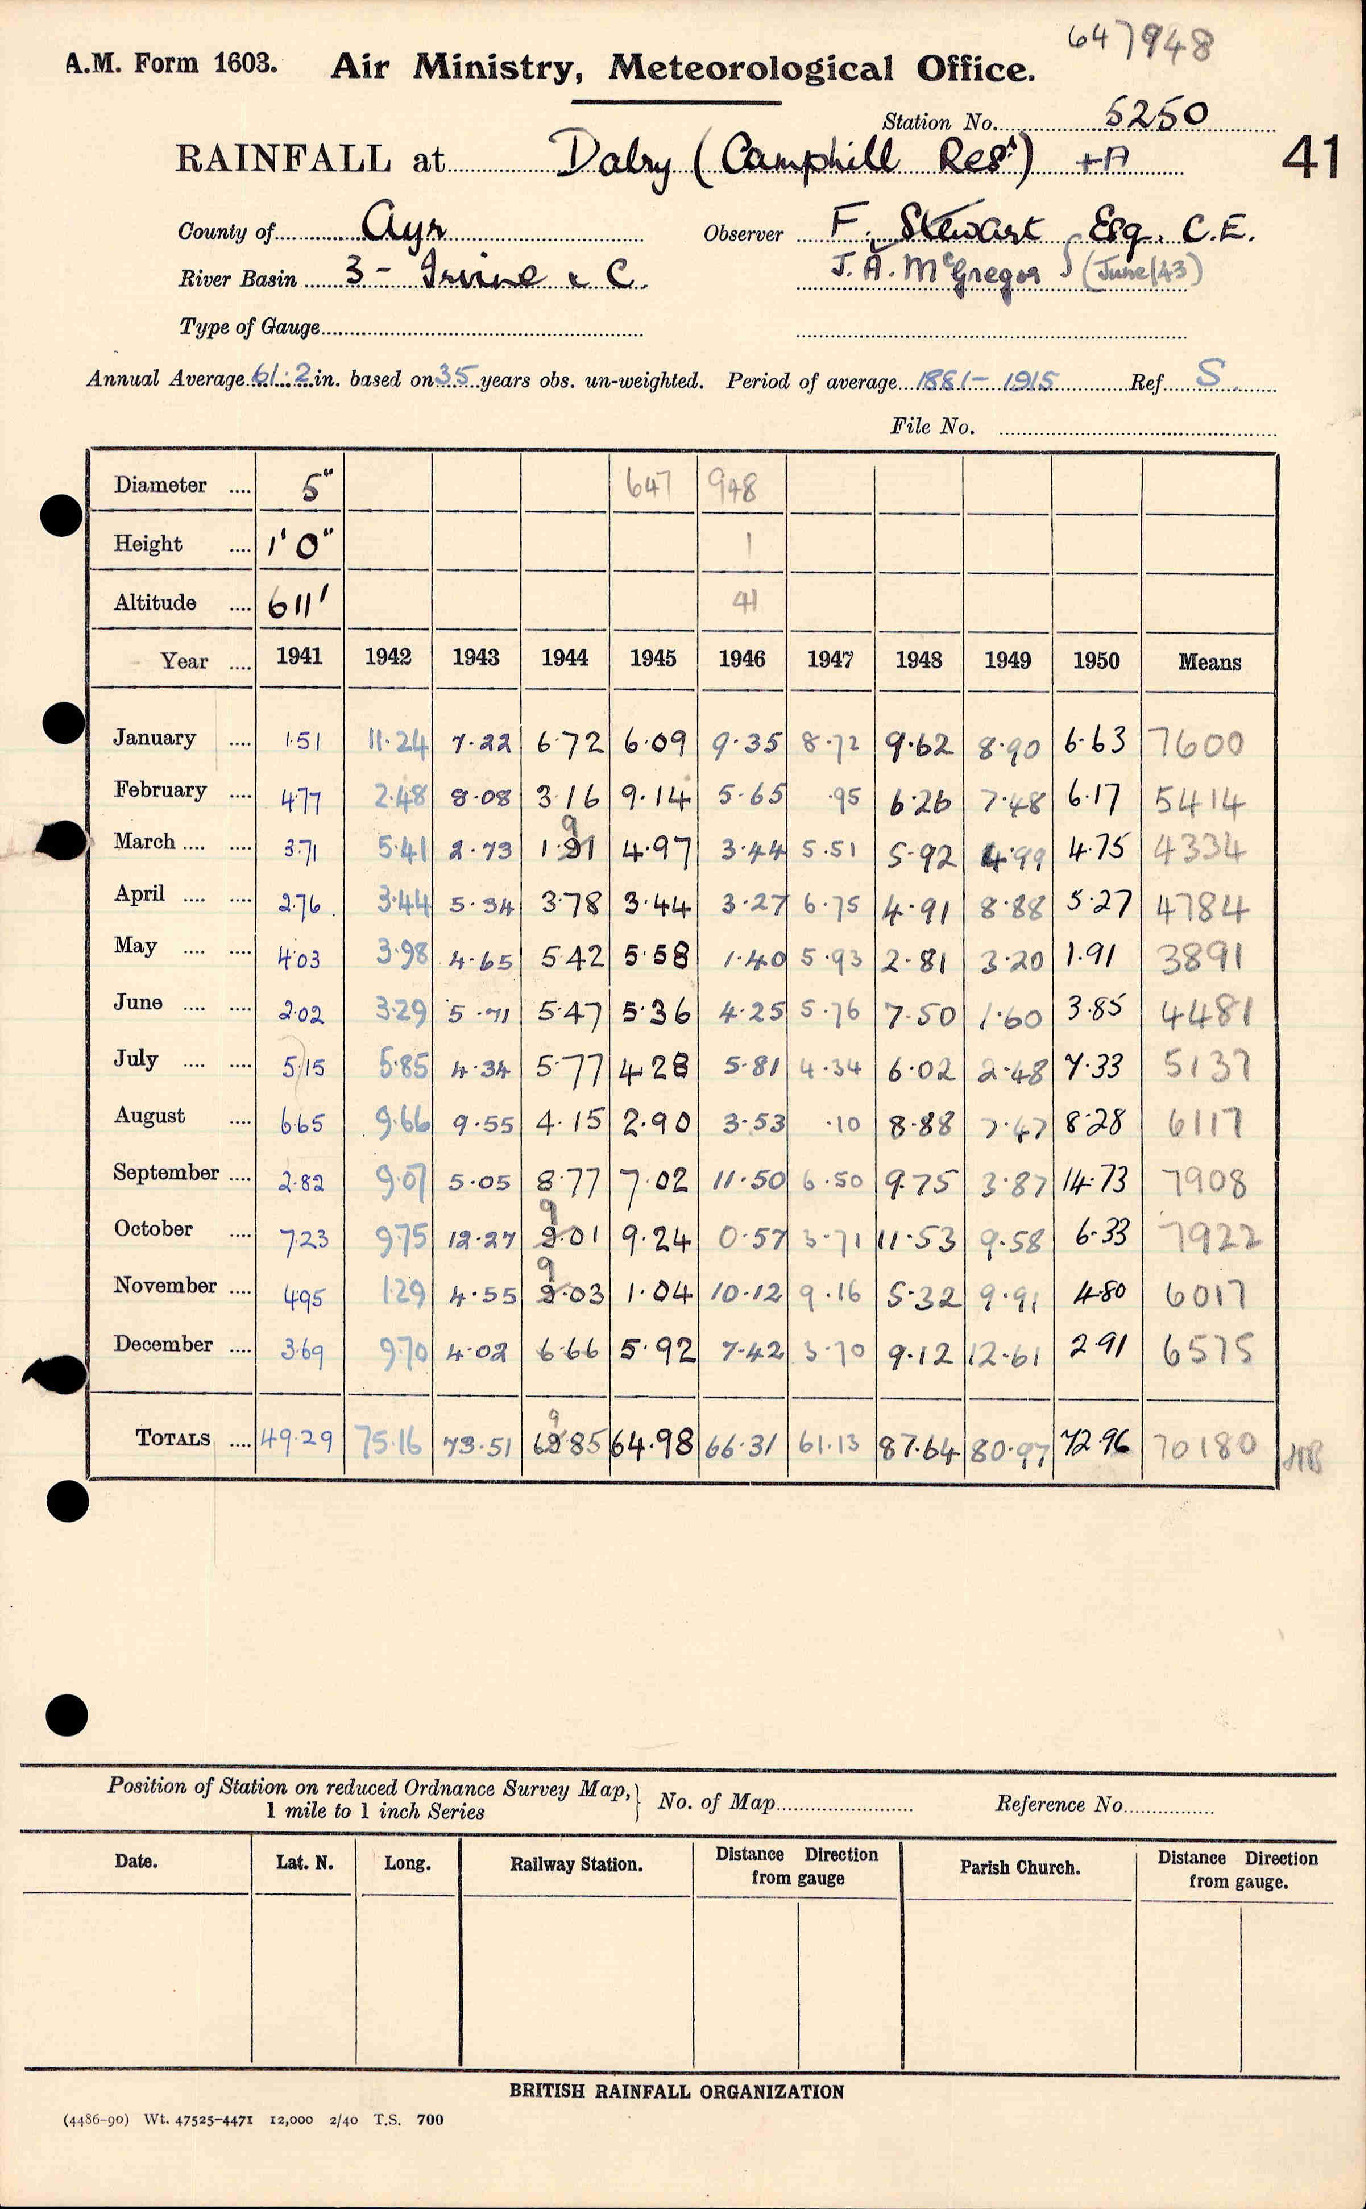 647948
A.M. Form 1603. Air Ministry, Meteorological Office.
Station No. 5250
RAINFALL at Dalry (Camphill Resr) +A 41
County of Ayr Observer F. Stewart Esq. C.E.
River Basin 3 - Irvine & C. J. A. McGregor (June/43)
Type of Gauge
Annual Average 61.2 in. based on 35 years obs. un-weighted. Period of average 1881-1915 Ref. S.
File No.
Diameter .... 5" 647 948
Height .... 1'0" 1
Altitude .... 611' 41
Year .... 1941 1942 1943 1944 1945 1946 1947 1948 1949 1950 Means
January .... 1.51 11.24 7.22 6.72 6.09 9.35 8.72 9.62 8.90 6.63 7600
February .... 4.77 2.48 8.08 3.16 9.14 5.65 .95 6.26 7.48 6.17 5414
March .... .... 3.71 5.41 2.73 1.91 4.97 3.44 5.51 5.92 4.99 4.75 4334
April .... .... 2.76 3.44 5.34 3.78 3.44 3.27 6.75 4.91 8.88 5.27 4784
May .... .... 4.03 3.98 4.65 5.42 5.58 1.40 5.93 2.81 3.20 1.91 3891
June .... .... 2.02 3.29 5.71 5.47 5.36 4.25 5.76 7.50 1.60 3.85 4481
July .... .... 5.15 5.85 4.34 5.77 4.28 5.81 4.34 6.02 2.48 7.33 5137
August .... 6.65 9.66 9.55 4.15 2.90 3.53 .10 8.88 7.47 8.28 6117
September .... 2.82 9.07 5.05 8.77 7.02 11.50 6.50 9.75 3.87 14.73 7908
October .... 7.23 9.75 12.27 9.01 9.24 0.57 3.71 11.53 9.58 6.33 7922
November .... 4.95 1.29 4.55 9.03 1.04 10.12 9.16 5.32 9.91 4.80 6017
December .... 3.69 9.70 4.02 6.66 5.92 7.42 3.70 9.12 12.61 2.91 6575
TOTALS .... 49.29 75.16 73.51 69.85 64.98 66.31 61.13 87.64 80.97 72.96 70180
Position of Station on reduced Ordnance Survey Map, 1 mile to 1 inch Series } No. of Map Reference No.
Date. Lat. N. Long. Railway Station. Distance Direction from gauge Parish Church. Distance Direction from gauge.
BRITISH RAINFALL ORGANIZATION
(4486-90) Wt. 47525-4471 12,000 2/40 T.S. 700